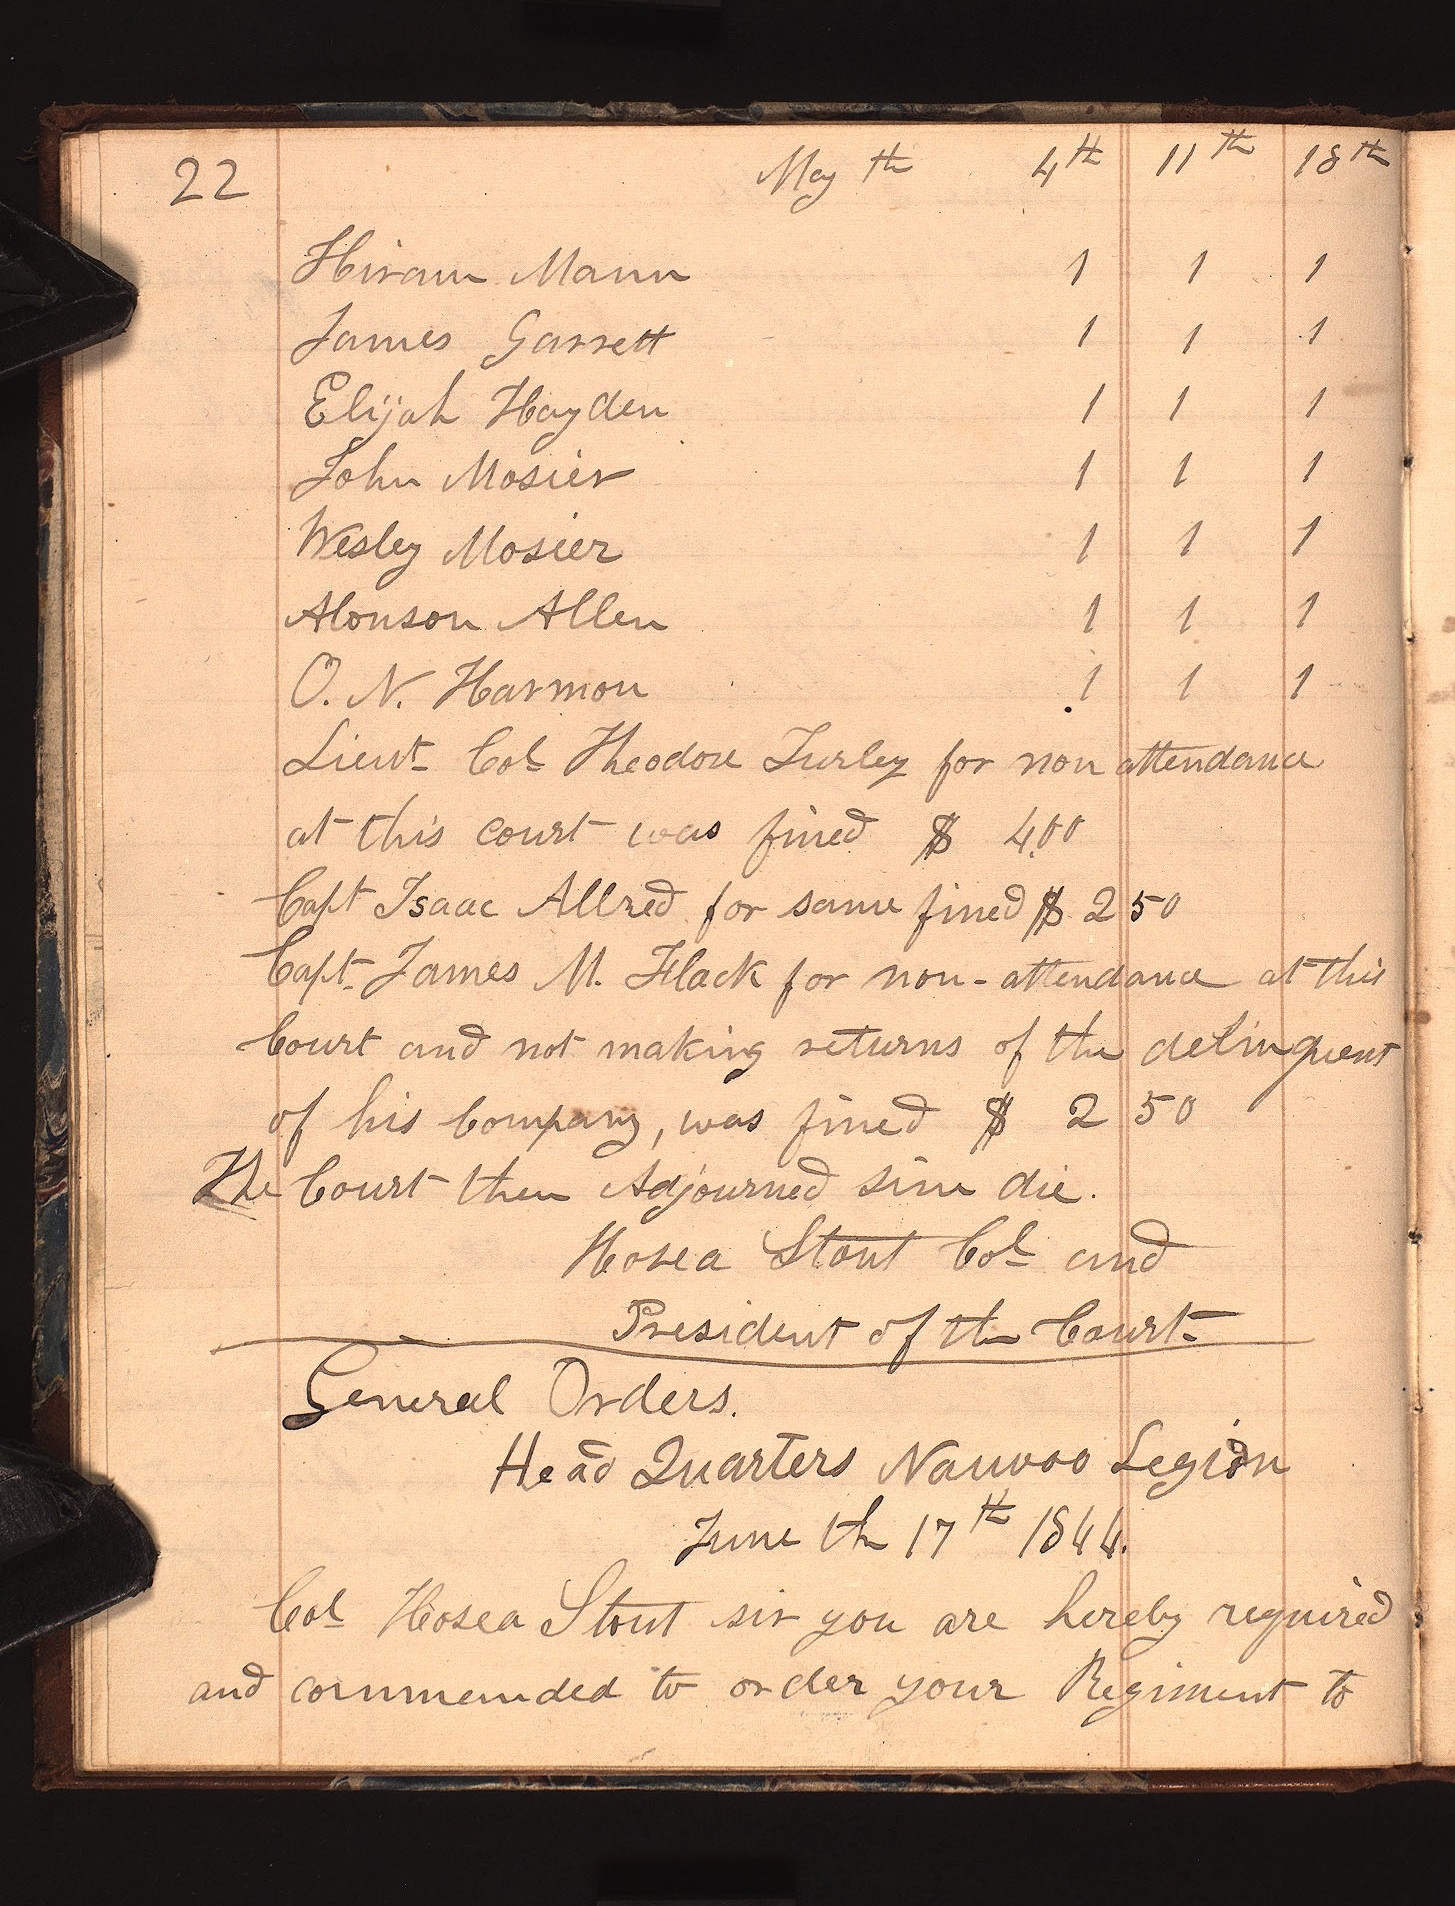 22 May th 4th 11th 18th
Hiram Mann 1 1 1
James Garrett 1 1 1
Elijah Hayden 1 1 1
John Mosier 1 1 1
Wesley Mosier 1 1 1
Alonson Allen 1 1 1
O. N. Harmon 1 1 1
Lieut Col Theodore Turley for non attendance
at this court was fined $ 4.00
Capt Isaac Allred for same fined $ 2 50
Capt James M. Flack for non-attendance at this
Court and not making returns of the delinquent
of his Company, was fined $ 2 50
The Court then Adjourned sine die.
Hosea Stout Col and
President of the Court
General Orders.
Head Quarters Nauvoo Legion
June th 17th 1844.
Col Hosea Stout sir you are hereby required
and commended to order your Regiment to